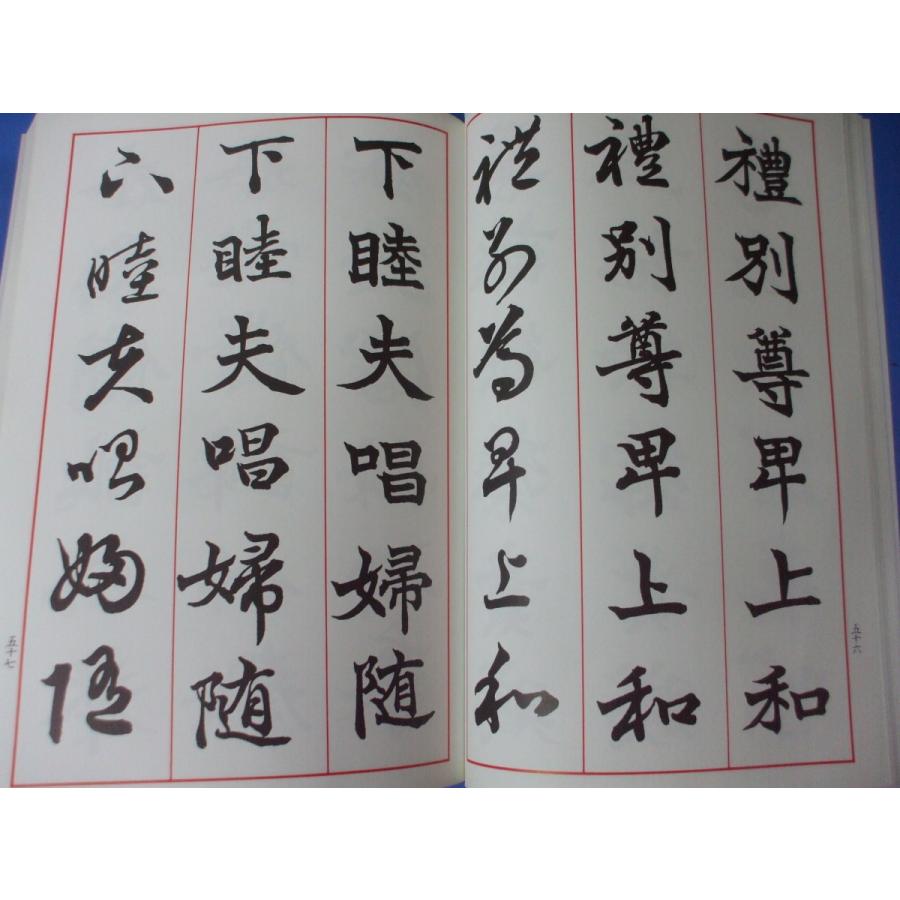 禮別尊卑上和
禮別尊卑上和
禮別尊卑上和
五十六
下睦夫唱婦随
下睦夫唱婦随
下睦夫唱婦随
五十七